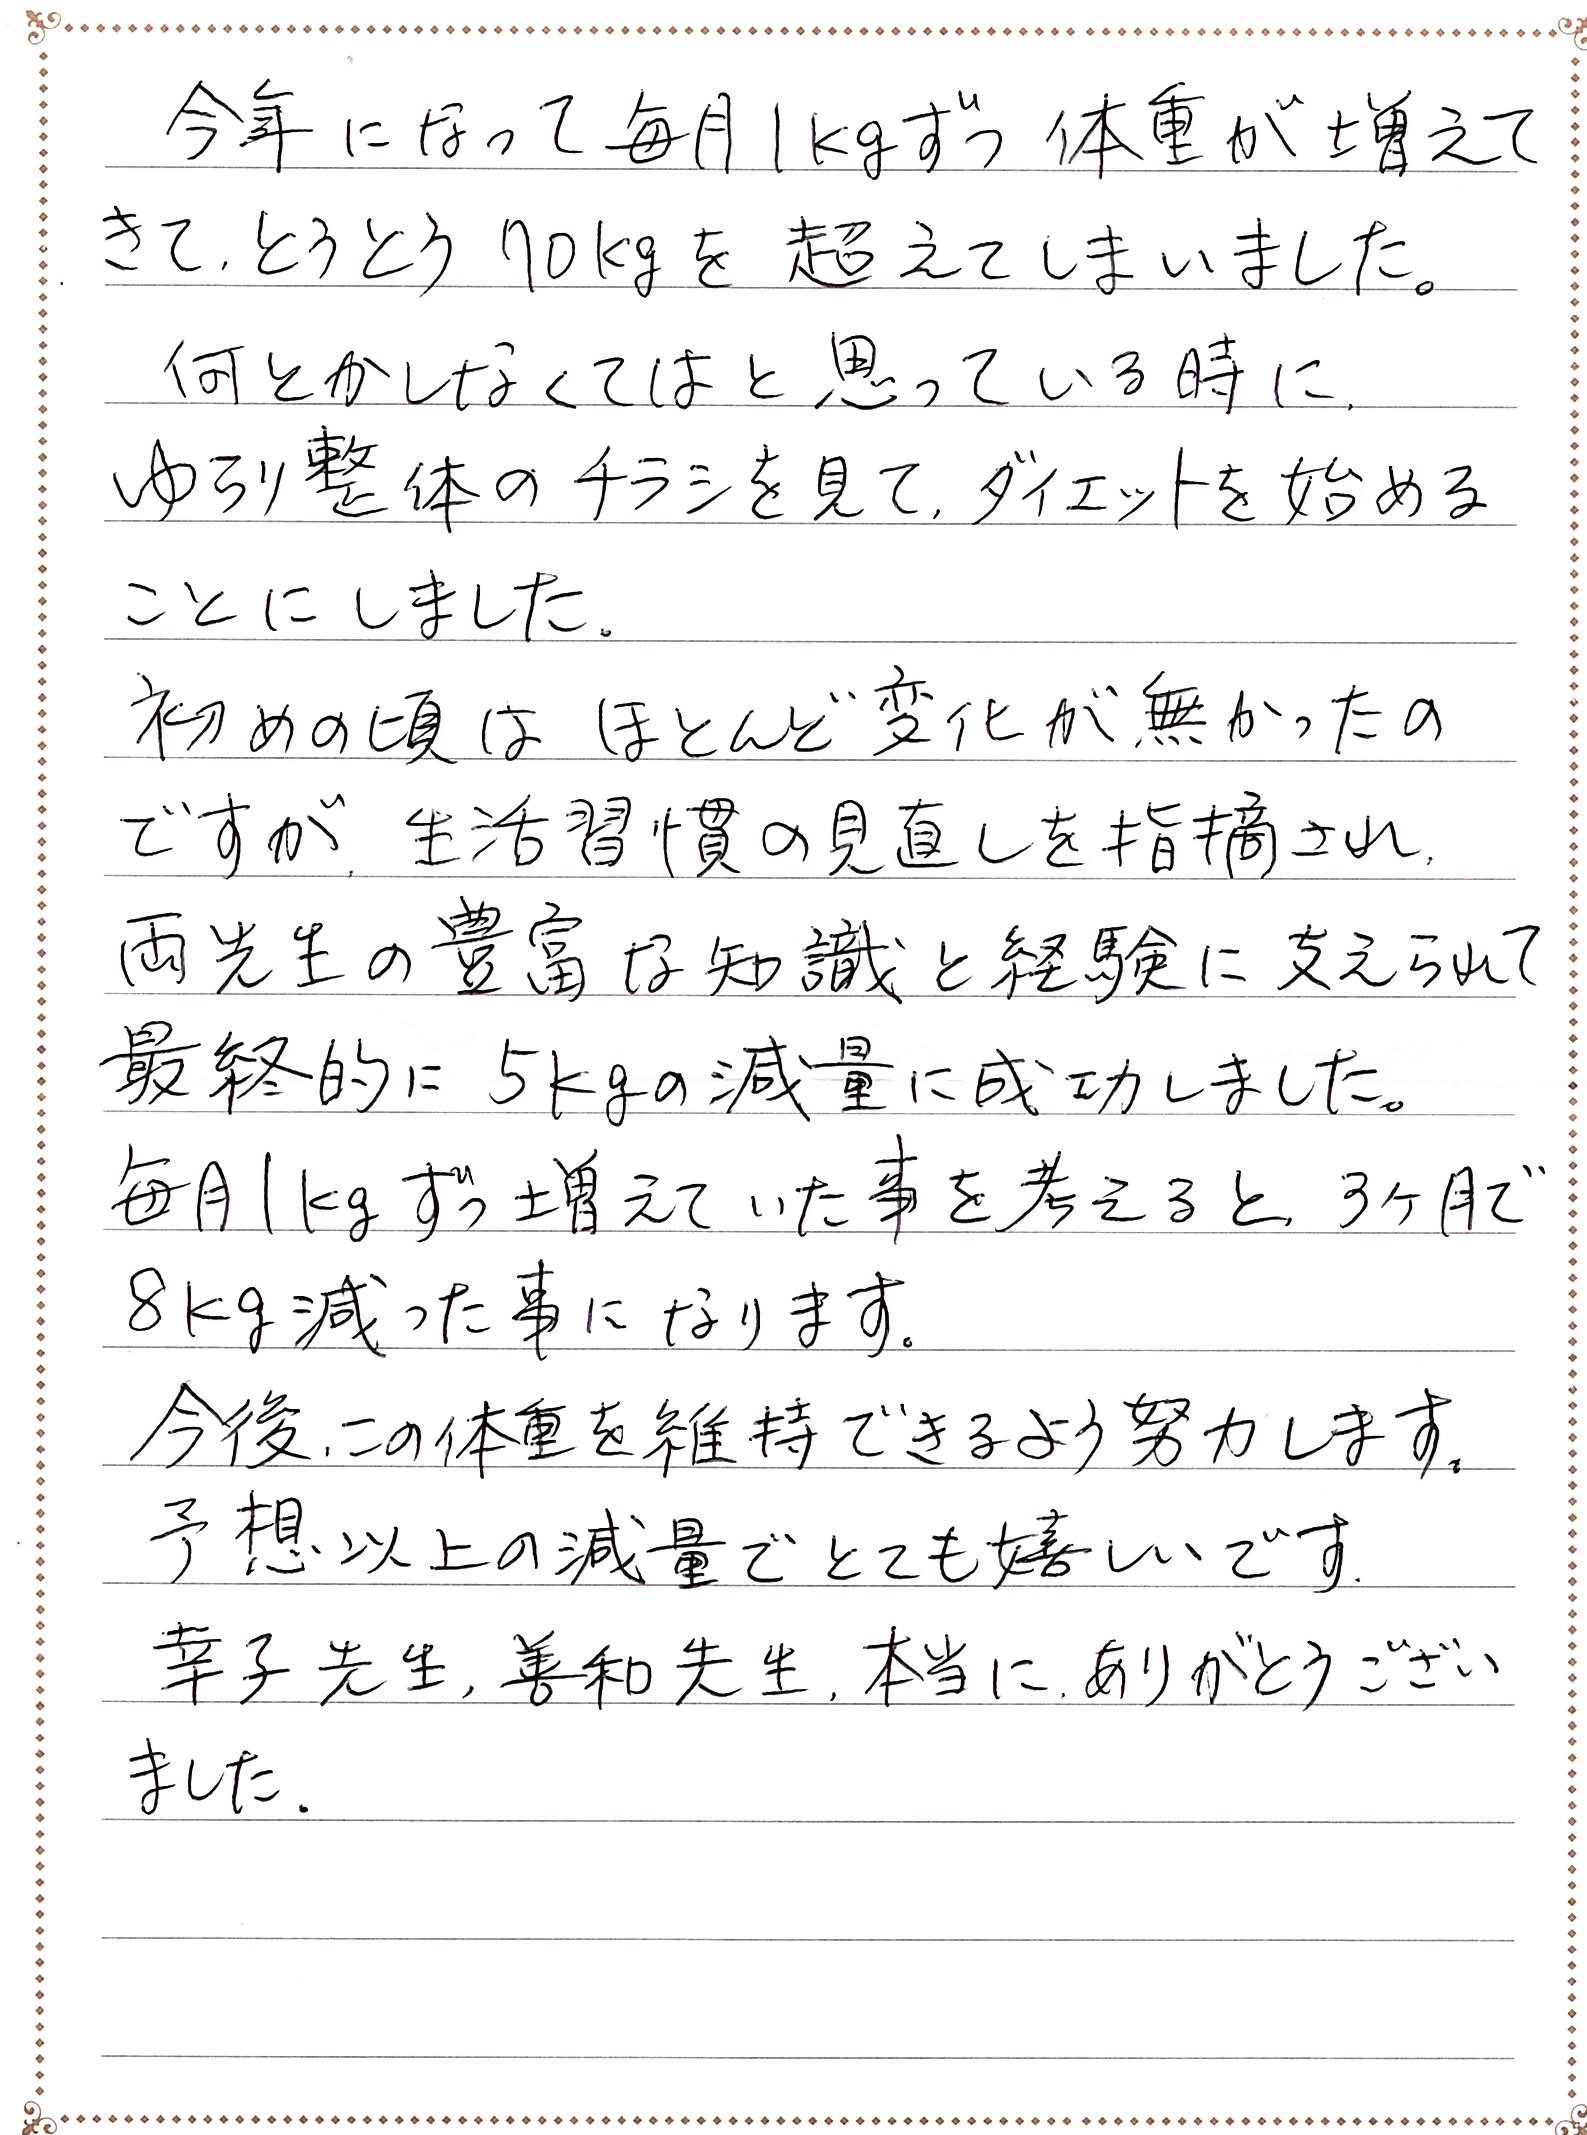 今年になって毎月1kgずつ体重が増えて
きて、とうとう70kgを超えてしまいました。
何とかしなくてはと思っている時に、
ゆらり整体のチラシを見て、ダイエットを始める
ことにしました。
初めの頃はほとんど変化が無かったの
ですが、生活習慣の見直しを指摘され、
両先生の豊富な知識と経験に支えられて
最終的に5kgの減量に成功しました。
毎月1kgずつ増えていた事を考えると、3ヶ月で
8kg減った事になります。
今後、この体重を維持できるよう努力します。
予想以上の減量でとても嬉しいです.
幸子先生、善和先生、本当に、ありがとうござい
ました.